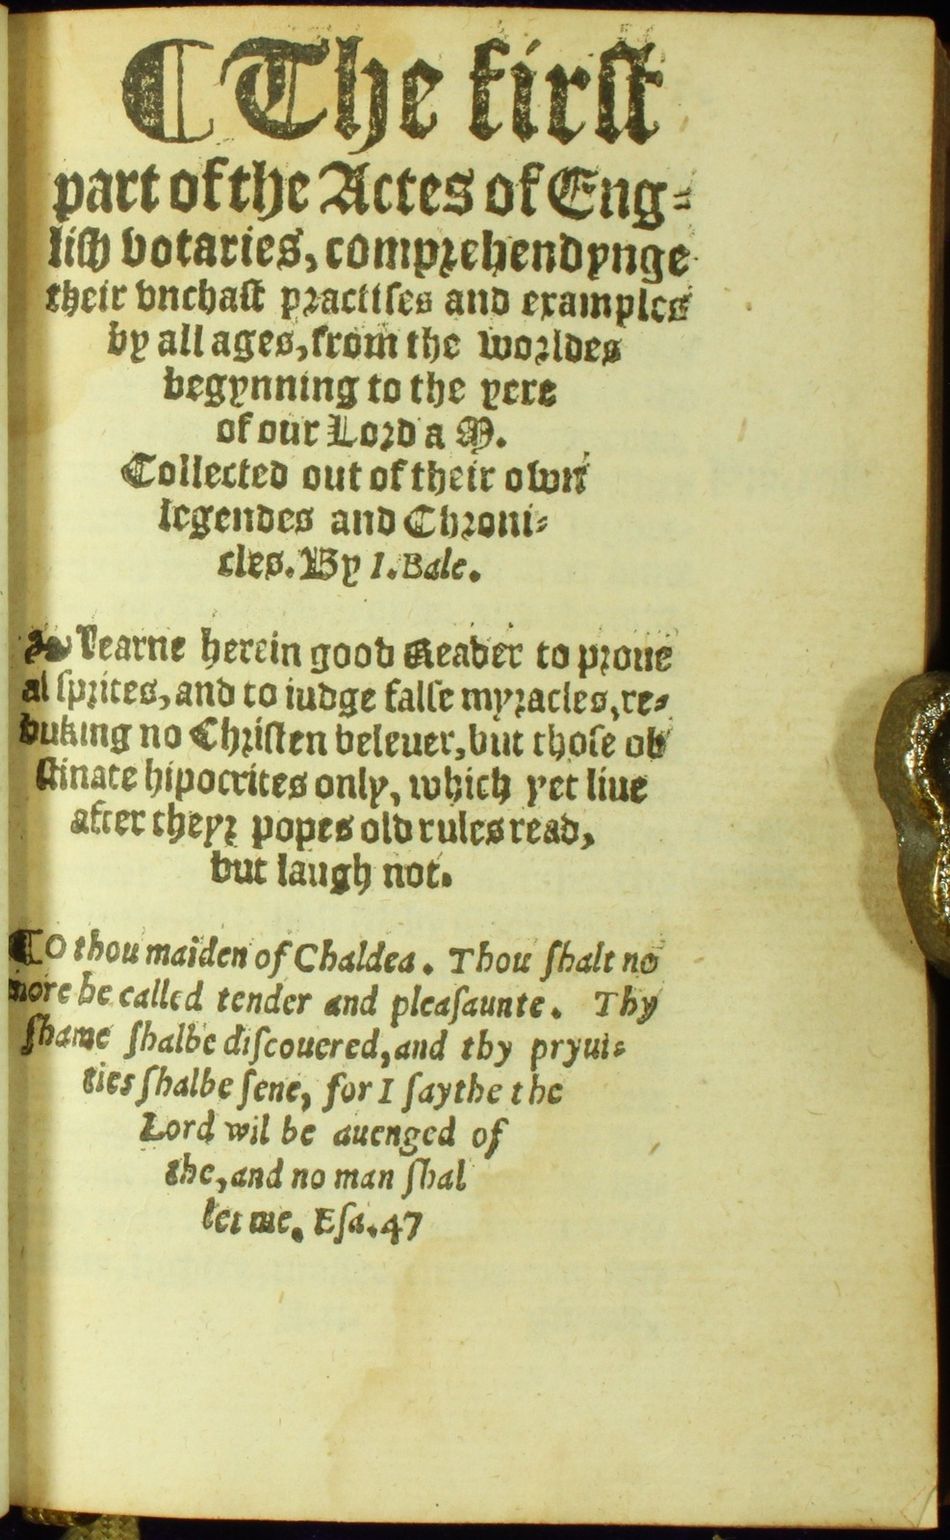 ¶ The first
part of the Actes of Eng-
lish votaries, comprehendynge
their vnchast practises and examples
by all ages, from the worldes
begynning to the yere
of our Lord a M.
Collected out of their own
legendes and Chroni-
cles. By I. Bale.
❧ Learne herein good Reader to proue
al sprites, and to iudge false myracles, re-
buking no Christen beleuer, but those ob
stinate hipocrites only, which yet liue
after theyr popes old rules read,
but laugh not.
¶ O thou maiden of Chaldea. Thou shalt no
more be called tender and pleasaunte. Thy
shame shalbe discouered, and thy pryui-
ties shalbe sene, for I saythe the
Lord wil be auenged of
the, and no man shal
let me. Esa. 47